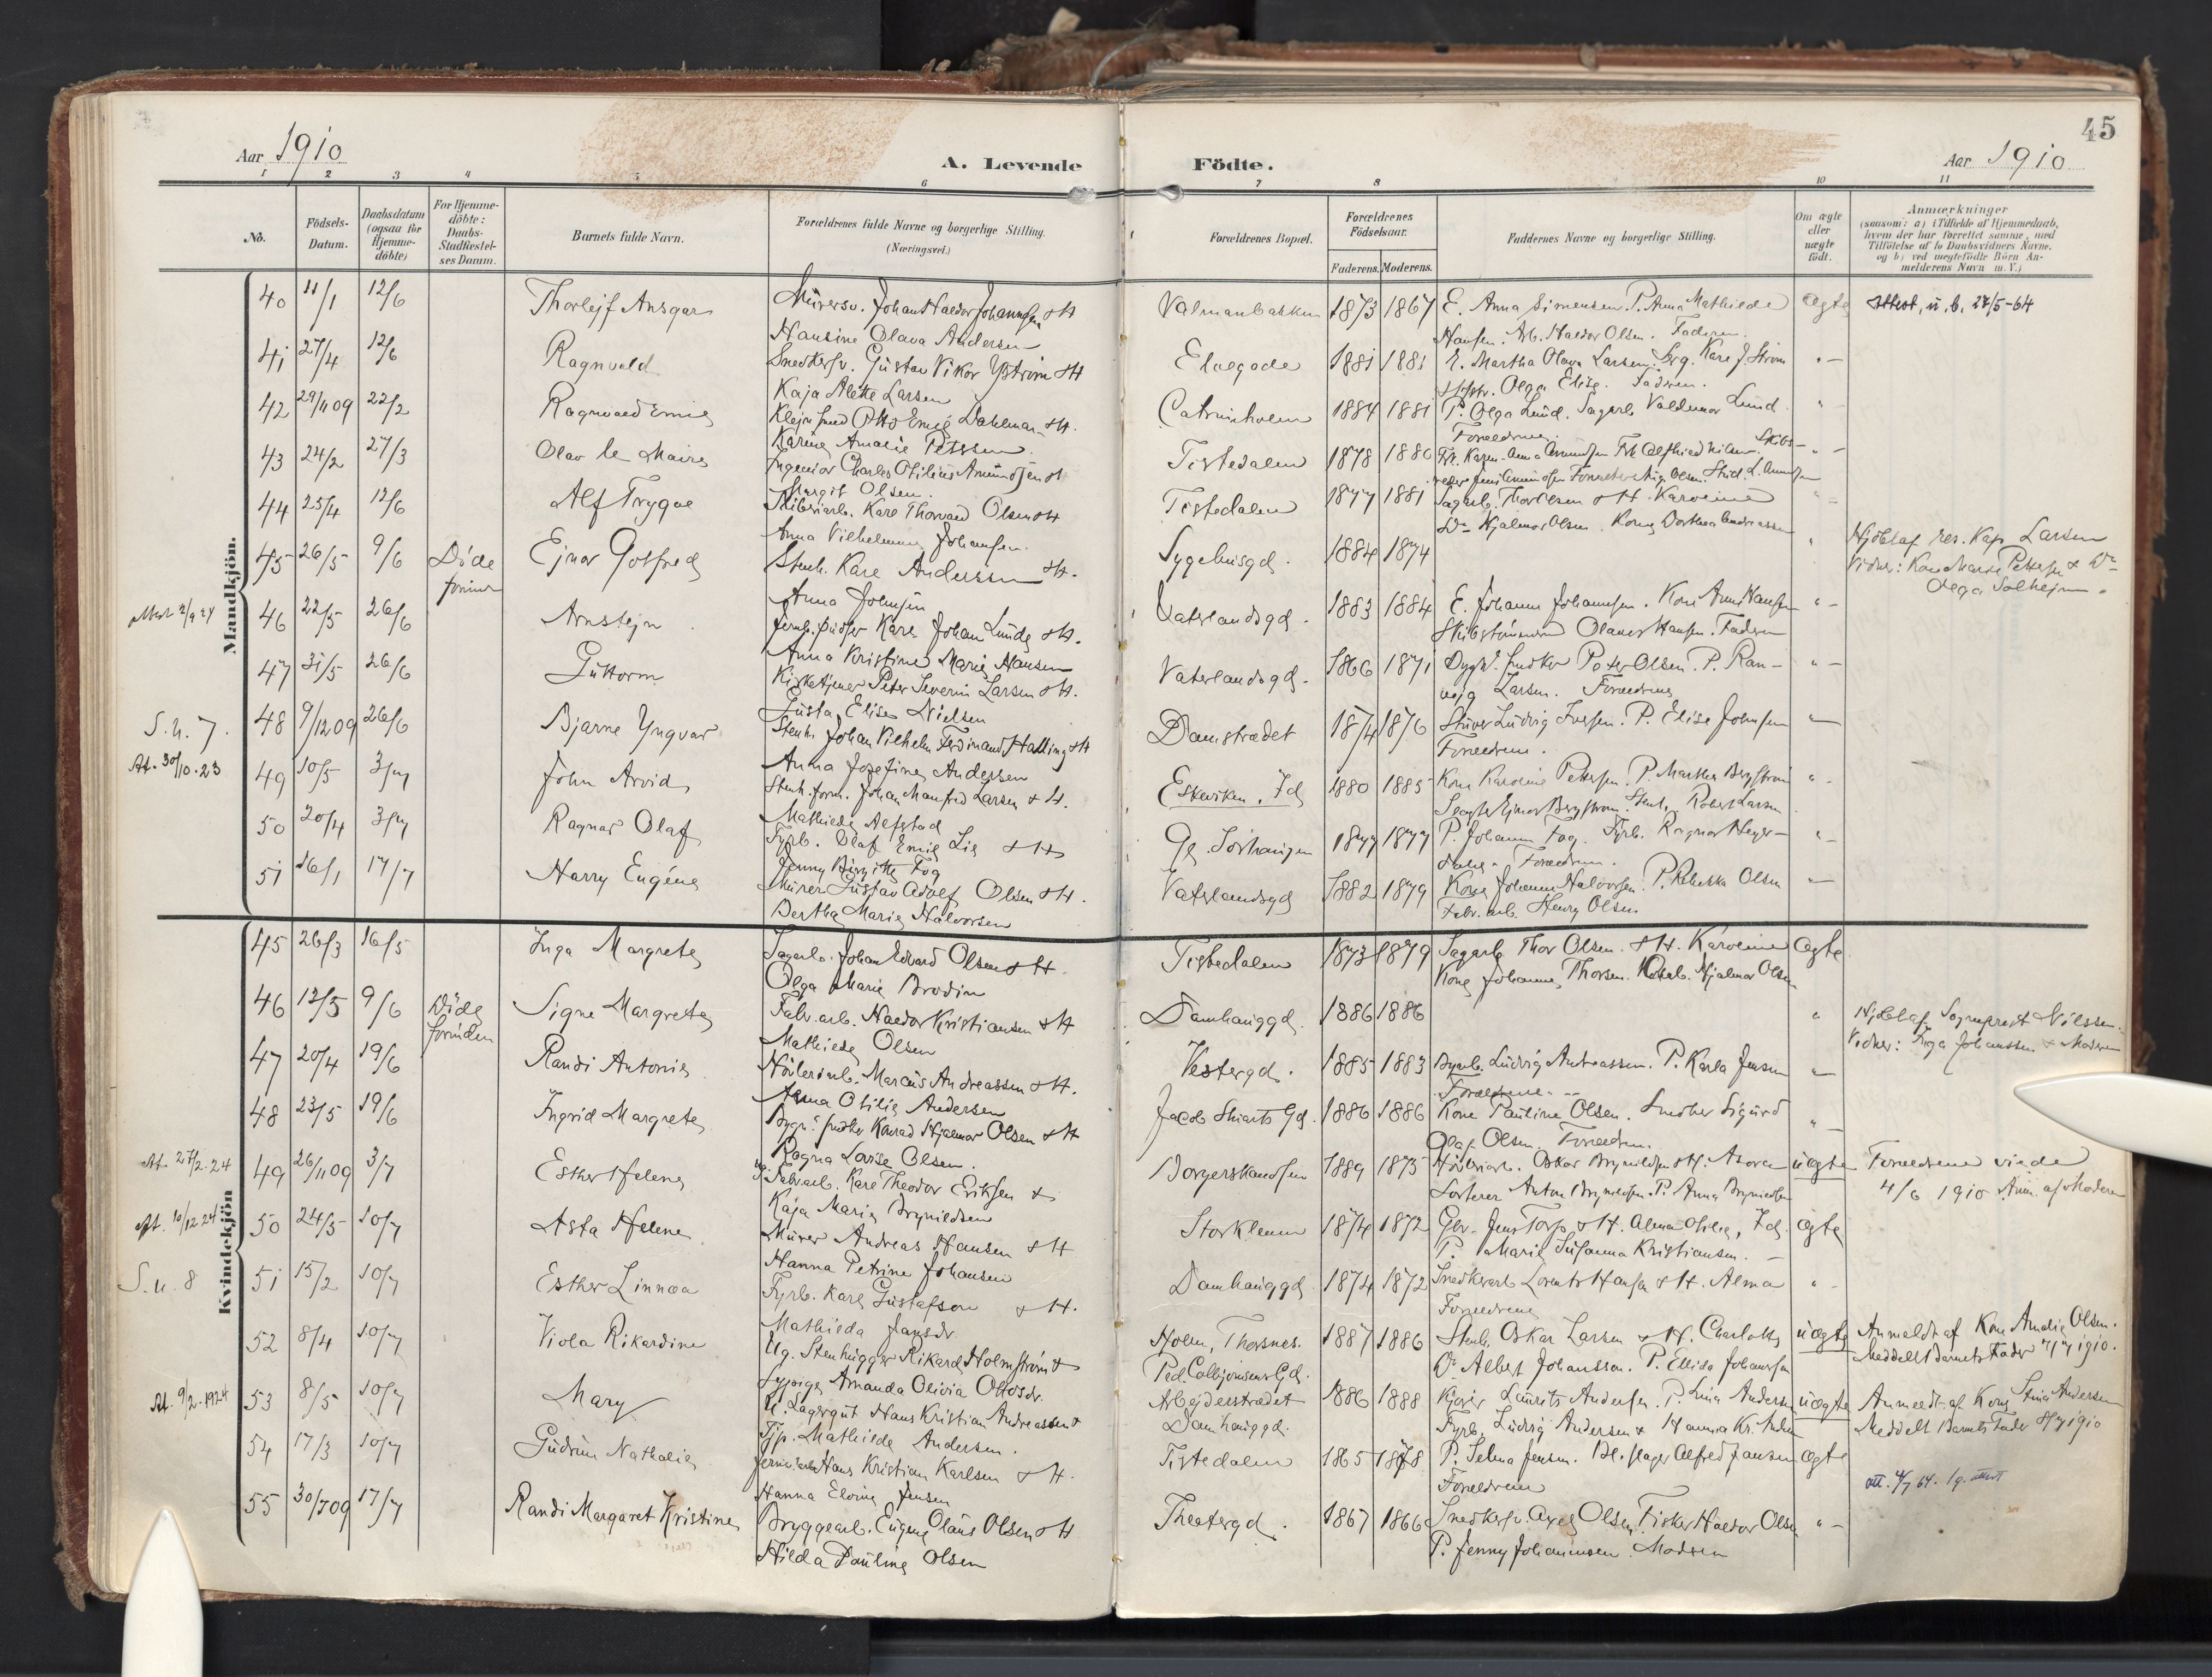 45
Aar 1910
A. Levende Födte.
Aar 1910
1 2 3 4 5 6 7 8 10 11
No.
Födsels-Datum.
Daabsdatum (ogsaa for Hjemme-döbte)
For Hjemme-döbte: Daabs-Stadfæstel-ses Datum.
Barnets fulde Navn.
Forældrenes fulde Navne og borgerlige Stilling. (Næringsvei.)
Forældrenes Bopæl.
Forældrenes Födselsaar.
Faderens. Moderens.
Faddernes Navne og borgerlige Stilling.
Om ægte eller uægte födt.
Anmærkninger
(saasom: a) i Tilfælde af Hjemmedaab,
hvem der har forrettet samme, med
Tilföielse af to Daabsvidners Navne.
og b) ved uægtefödte Börn An-
melderens Navn m. V.)
Mandkjön.
40 11/1 12/6 Thorleif Ansgar Murersv. Johan Haldor Johannsen & H Valmanbakken 1873 1867 E. Anna Simensen. P. Anna Mathilde ægte Attest, u. b. 27/5-64
Hansine Olava Andersen Hansen. Arb. Haldor Olsen. Faderen.
41 27/4 12/6 Ragnvald Snedkersv. Gustav Viktor Yström & H Elvegade 1881 1881 E. Martha Olava Larsen. Karl J. Ström " -
Kaja Alette Larsen Olga Elise. Faderen.
42 29/11 09 22/2 Ragnvald Emil Otto Emil Dahlman & H. Catrinholm 1884 1881 P. Olga Lund. Sagarb. Valdemar Lund "
Karine Amalie Petersen Forældrene.
43 24/2 27/3 Olav le Maire Ingeniør Charles Otilius Amundsen & H Tistedalen 1878 1880 Frk. Karen Anna Amundsen " -
Margit Olsen.
44 25/4 12/6 Alf Trygve Karl Thorvald Olsen & H Tistedalen 1877 1881 Sagarb. Thor Olsen & H. Karoline "
Anna Vilhelmine Johansen. Do Hjalmar Olsen. Kone Dorthea Andreassen
45 26/5 9/6 Döde forinden Ejnar Gotfred Stenh. Karl Andersen & H. Sygehusgd. 1884 1874 " Hjdbtaf res. Kap. Larsen
Anna Johnsen Vidner: Kone Marie Pettersen & Do
Olga Solhejm.
46 22/5 26/6 Arnstejn Karl Johan Lund & H. Vaterlandsgd. 1883 1884 E. Johanne Johannesen. Kone Anna Hansen " -
Anna Kristine Marie Hansen Skibstömmerm Olaves Hansen. Faderen
47 31/5 26/6 Guttorm Kirketjener Peter Severin Larsen & H. Vaterlandsgd. 1866 1871 Peter Olsen. P. Ran- " -
Gusta Elise Nielsen vejg Larsen. Forældrene
S. u. 7. 48 9/12 09 26/6 Bjarne Yngvar Stenh. Johan Vilhelm Ferdinand Halling & H Damstrædet 1874 1876 Stuver Ludvig Iversen. P. Elise Johnsen " -
Anna Josefine Andersen Forældrene.
At. 30/10.23 49 10/5 3/7 John Arvid Stenh. form. Johan Manfred Larsen & H. Eskeviken, Id 1880 1885 Kone Karoline Pettersen. P. Martha Bergström " -
Mathilde Aspestad Ejnar Bergström. Stenh. Robert Larsen
50 20/4 3/7 Ragnar Olaf Fyrb. Olaf Emil Lie & H Gl. Sörhaugen 1877 1877 P. Johanne Fog. Fyrb. Ragnar Heyer- " -
Jenny Birgitte Fog dahl. Forældrene.
51 16/1 17/7 Harry Eugéne Murer Gustav Adolf Olsen & H. Vaterlandsgd 1882 1879 Kone Johanne Halvorsen. P. Rebekka Olsen " -
Bertha Marie Halvorsen Fabr. arb. Henry Olsen
Kvindekjön
45 26/3 16/5 Inga Margrete Sagarb. Johan Edvard Olsen & H. Tistedalen 1873 1879 Sagarb. Thor Olsen & H. Karoline ægte
Olga Marie Brodin Kone Johanne Thorsen. Hjalmar Olsen
46 12/5 9/6 Döde forinden Signe Margrete Fabr. arb. Haldor Kristiansen & H Damhauggd. 1886 1886 " Hjdbtaf Sogneprest Nilssen.
Mathilde Olsen Vidner: Johanssen & Moderen
47 20/4 19/6 Randi Antonie Hövleriarb. Marcus Andreassen & H. Vestergd. 1885 1883 Ludvig Andreassen. P. Karla Jensen " -
Anna Otilie Andersen Forældrene.
48 23/5 19/6 Ingrid Margrete Konrad Hjalmar Olsen & H Jacob Skiarts Gd. 1886 1886 Kone Pauline Olsen. Snedker Sigurd " -
Ragna Lovise Olsen. Olaf Olsen. Forældrene.
At. 27/2.24 49 26/11 09 3/7 Esther Helene Fabr. arb. Karl Theodor Eriksen & Borgerskandsen 1889 1875 Hövleriarb. Oskar Brynildsen & H. Asora uægte Forældrene viede
Kaja Marie Brynildsen Sorterer Anton Brynildsen. P. Anna Brynildsen 4/6 1910 Anm. af Moderen
At. 10/12 24 50 24/5 10/7 Asta Helene Murer Andreas Hansen & H Storklem 1874 1872 Jens Torp & H. Alma Otilie, Id. ægte
Hanna Petrine Johansen P. Marie Susanna Kristiansen.
S. u. 8 51 15/2 10/7 Esther Linnea Fyrb. Karl Gustafson & H. Damhauggd 1874 1872 Snedkerarb. Lorentz Hansen & H. Alma " -
Mathilda Jansdr Forældrene
52 8/4 10/7 Viola Rikardine Ug. Stenhugger Rikard Holmström & Holm, Thorsnes. 1887 1886 Stenh. Oskar Larsen & H. Charlotte uægte Anmeldt af Kone Amalie Olsen.
Amanda Olivia Ottosdr. Ped. Colbjörnsens Gd. Do Albert Johansson. P. Ellida Johansen Meddelt Barnets Fader 11/7 1910.
At. 9/2.1924 53 8/5 10/7 Mary U. Lagergut Hans Kristian Andreassen & Arbejderstrædet 1886 1888 Kjører Laurits Andersen. P. Lina Andersen uægte Anmeldt af Kone Stina Andersen
Tjp. Mathilde Andersen. Damhauggd. Fyrb. Ludvig Andersen & Hanna Kr. Meddelt Barnets Fader 1910
54 17/3 10/7 Gudrun Nathalie Hans Kristian Karlsen & H. Tistedalen 1865 1878 P. Selma Jensen. Bl. slager Alfred Jansen ægte att. 4/7 64.
Hanna Elvine Jensen Forældrene
55 30/7 09 17/7 Randi Margaret Kristine Bryggearb. Eugen Olaus Olsen & H Theatergd. 1867 1866 Snedkersv. Axel Olsen. Fisker Haldor Olsen " -
Hilda Pauline Olsen P. Jenny Johannesen. Moderen